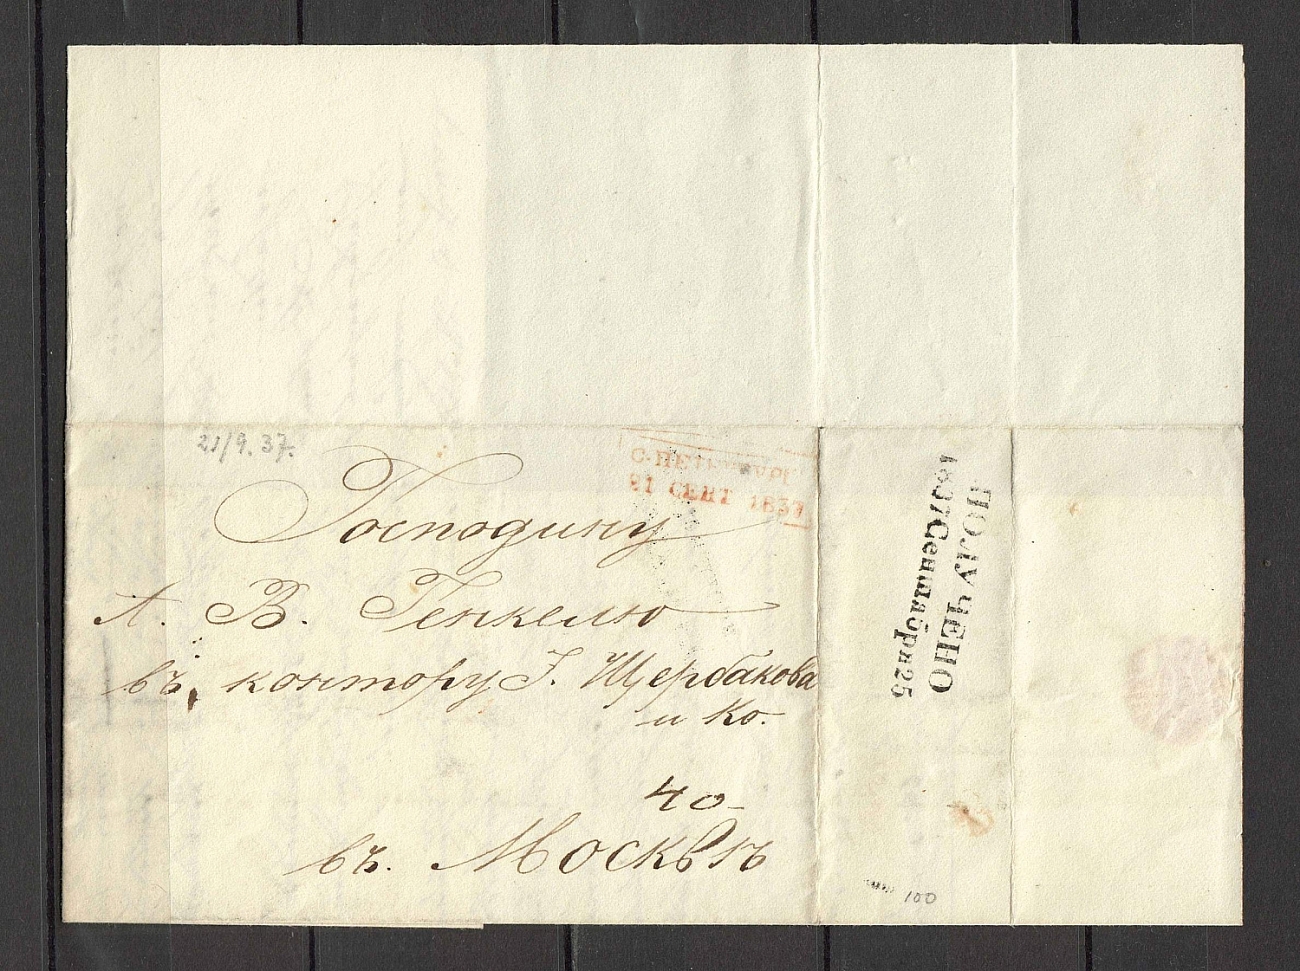 21/9.37.
С·ПЕТЕРБУРГ
21 СЕНТ 1837
Господину
А. В. Генкелю
въ контору Г. Щербакова
и Ко.
40
въ. Москвѣ
ПОЛУЧЕНО
1837 Сентября 25
100